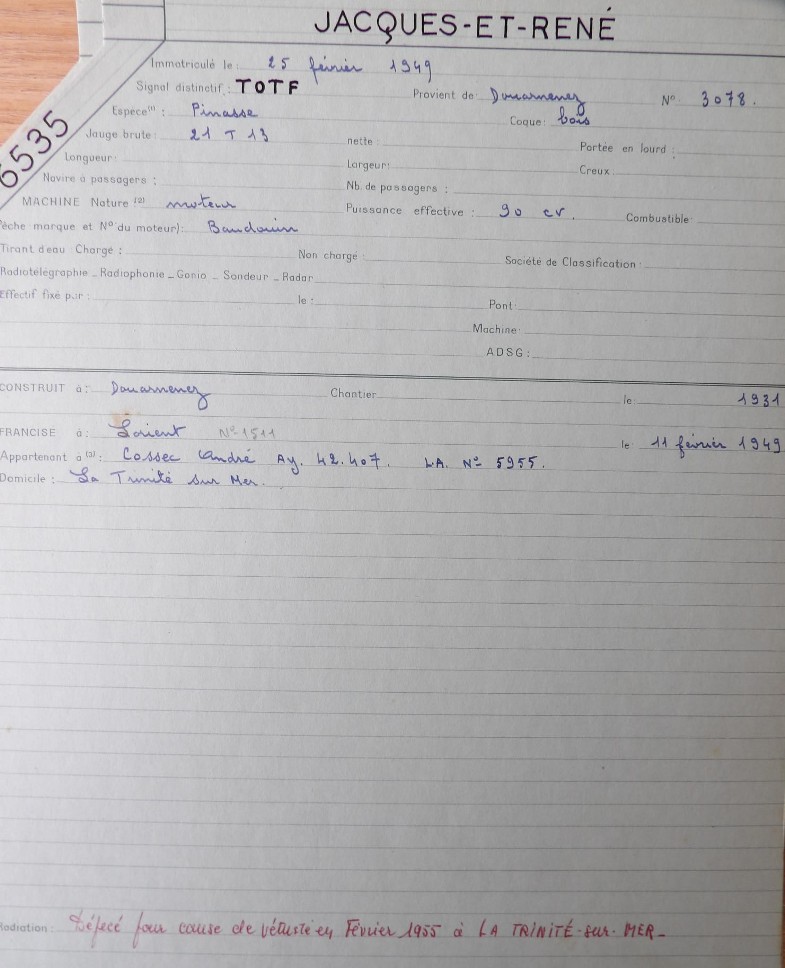 JACQUES-ET-RENÉ
Immatriculé le : 25 février 1949
Signal distinctif : TOTF Provient de : Douarnenez N° 3078.
6535
Espece (1) : Pinasse Coque : bois
Jauge brute : 21 T 13 nette : Portée en lourd :
Longueur : Largeur : Creux :
Navire à passagers : Nb. de passagers :
MACHINE Nature (2) moteur Puissance effective : 90 cv. Combustible :
êche : marque et N° du moteur) : Baudouin
Tirant d'eau Chargé : Non chargé : Société de Classification :
Radiotélégraphie _ Radiophonie _ Gonio _ Sondeur _ Radar
Effectif fixé par : le : Pont :
Machine :
ADSG :
CONSTRUIT à : Douarnenez Chantier le 1931
FRANCISE à : Lorient N° 1511 le 11 février 1949
Appartenant à (3) : Cossec André Ay. 42.407. L.A. N° 5955.
Domicile : La Trinité sur Mer.
Radiation : Dépecé pour cause de vétusté en Février 1955 à LA TRINITÉ-sur-MER_